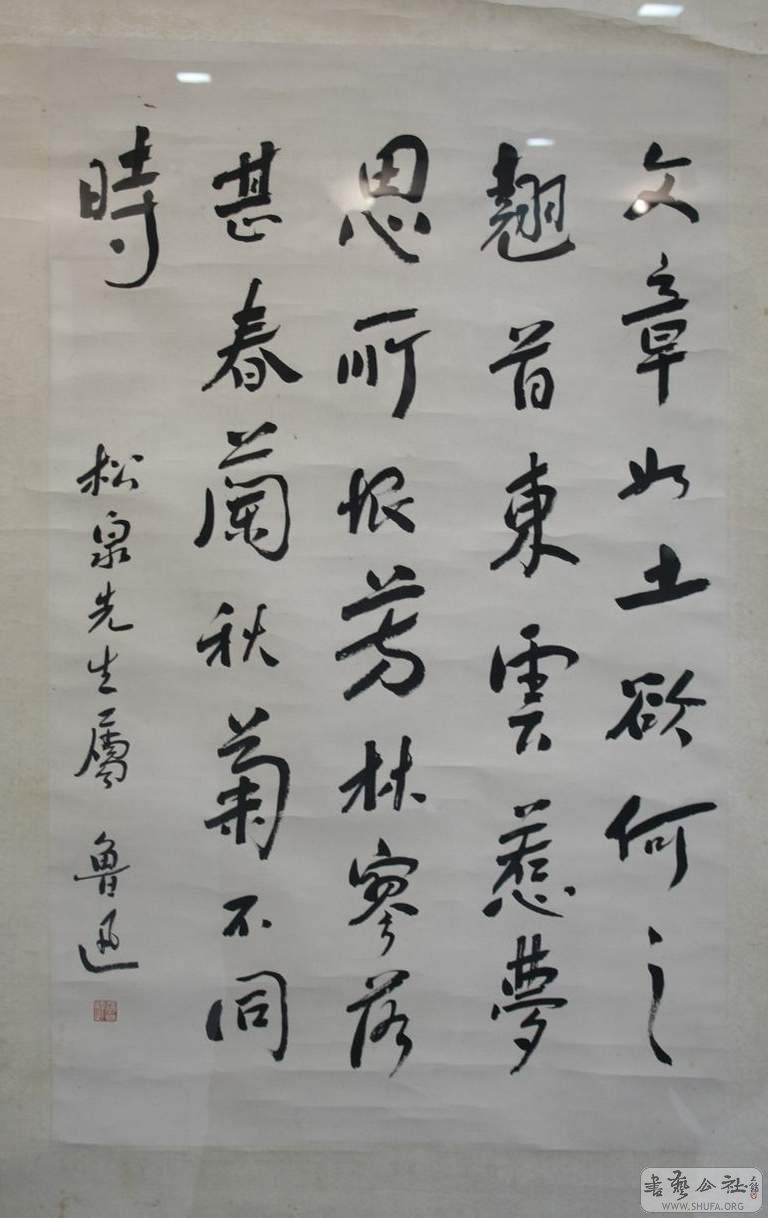 文章如土欲何之
翹首東雲惹夢
思所恨芳林寥落
甚春蘭秋菊不同
時
松泉先生屬 魯迅
書藝公社
WWW.SHUFA.ORG